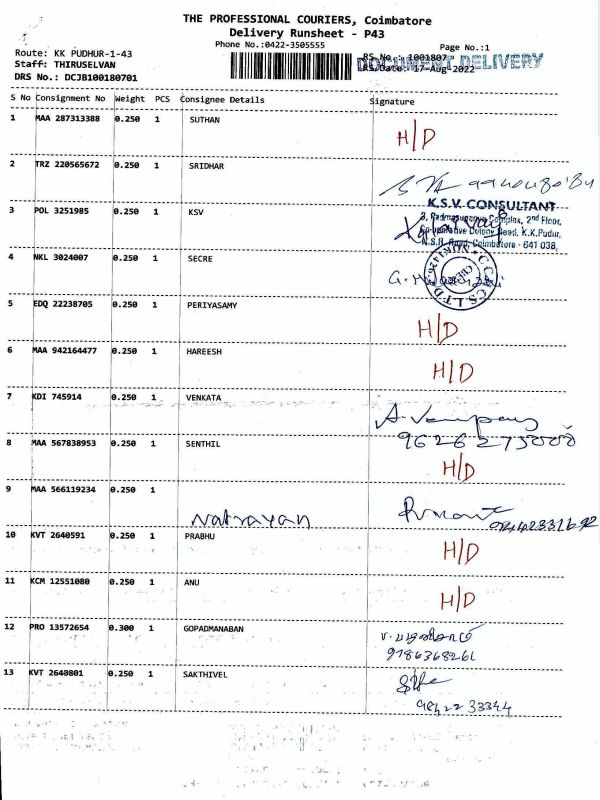 THE PROFESSIONAL COURIERS, Coimbatore
Delivery Runsheet - P43
Phone No.:0422-3505555
Page No.:1
Route: KK PUDHUR-1-43
RS No.: 1001807
Staff: THIRUSELVAN
DOCUMENT DELIVERY
DRS No.: DCJB100180701
DRS Date: 17-Aug-2022
S No Consignment No Weight PCS Consignee Details Signature
1 MAA 287313388 0.250 1 SUTHAN H/D
2 TRZ 220565672 0.250 1 SRIDHAR
K.S.V. CONSULTANT
3 POL 3251985 0.250 1 KSV
Complex, 2nd Floor,
Co-operative Colony Road, K.K.Pudur,
N.S.R. Road, Coimbatore - 641 038.
4 NKL 3024007 0.250 1 SECRE
5 EDQ 22238705 0.250 1 PERIYASAMY H/D
6 MAA 942164477 0.250 1 HAREESH H/D
7 KDI 745914 0.250 1 VENKATA
8 MAA 567838953 0.250 1 SENTHIL H/D
9 MAA 566119234 0.250 1
Natrayan
10 KVT 2640591 0.250 1 PRABHU H/D
11 KCM 12551080 0.250 1 ANU H/D
12 PRO 13572654 0.300 1 GOPADMANABAN
9786368261
13 KVT 2640801 0.250 1 SAKTHIVEL
9842233344